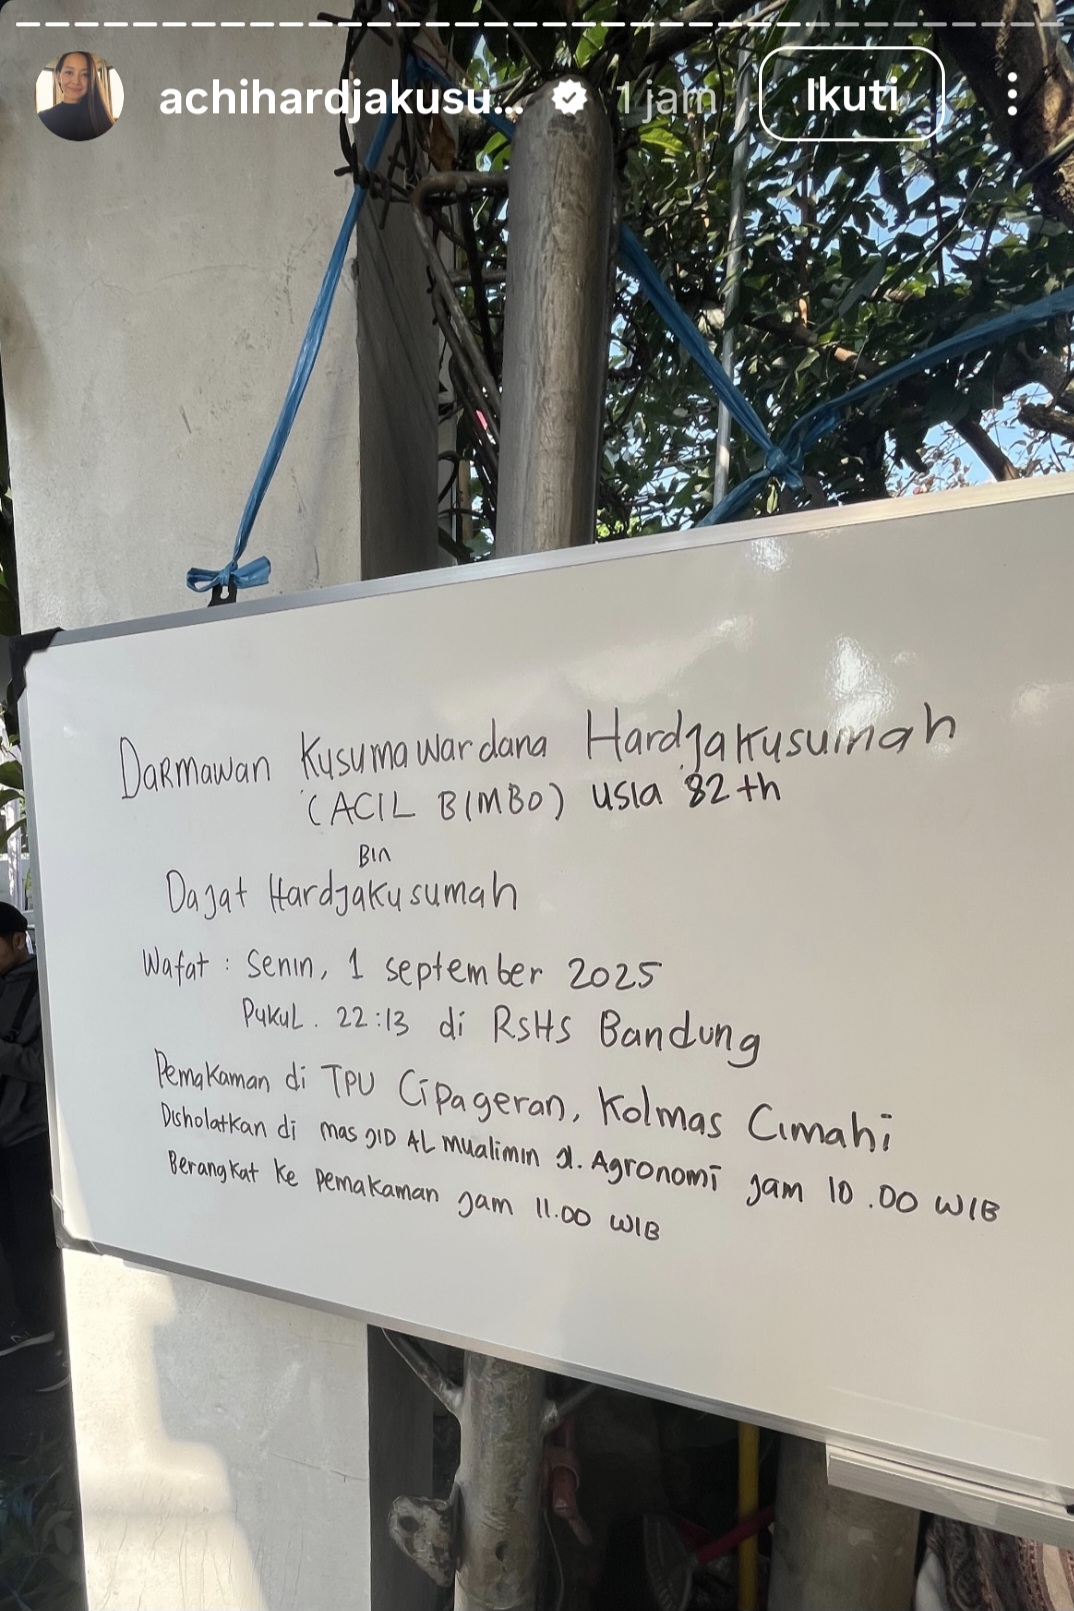 achihardjakusu... 1 jam Ikuti
Darmawan Kusumawardana Hardjakusumah
(ACIL BIMBO) usia 82th
Bin
Dajat Hardjakusumah
Wafat : Senin, 1 september 2025
Pukul. 22:13 di RSHS Bandung
Pemakaman di TPU Cipageran, Kolmas Cimahi
Disholatkan di masjID AL Mualimin Jl. Agronomi jam 10.00 WIB
Berangkat ke pemakaman jam 11.00 WIB